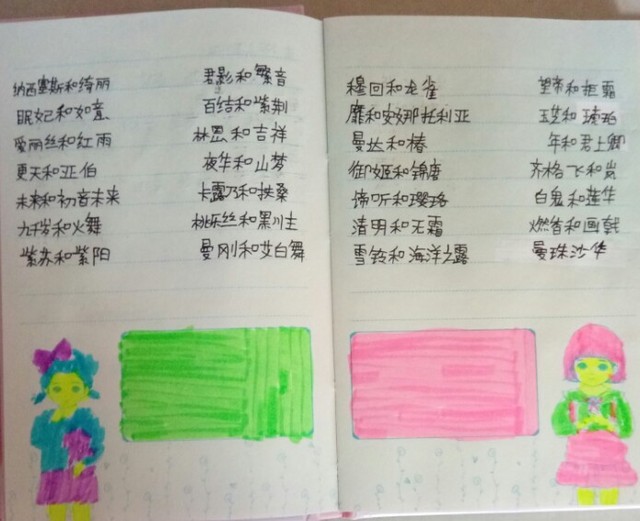 纳西塞斯和绮丽
眠妃和如意
爱丽丝和红雨
夏天和亚伯
未来和初音未来
九千岁和火舞
紫苏和紫阳
君影和繁音
百结和紫荆
林昆和吉祥
夜华和山梦
卡露乃和扶桑
桃乐丝和黑川主
曼刚和艾白舞
穆回和龙雀
靡和安娜托利亚
曼达和椿
御姬和锦唐
饰听和璎珞
清明和无霜
雪铃和海洋之露
望帝和拒霜
玉芝和琥珀
年和君上卿
齐格飞和岚
白鬼和莲华
燃香和画戟
曼珠沙华